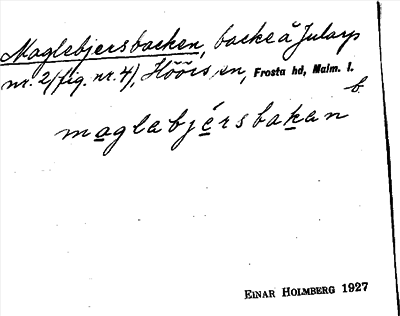 Maglebjersbacken, backe å Jularp
nr. 2 (fig. nr. 4), Höörs sn, Frosta hd, Malm. l.
b.
maglebjérsbakan
EINAR HOLMBERG 1927